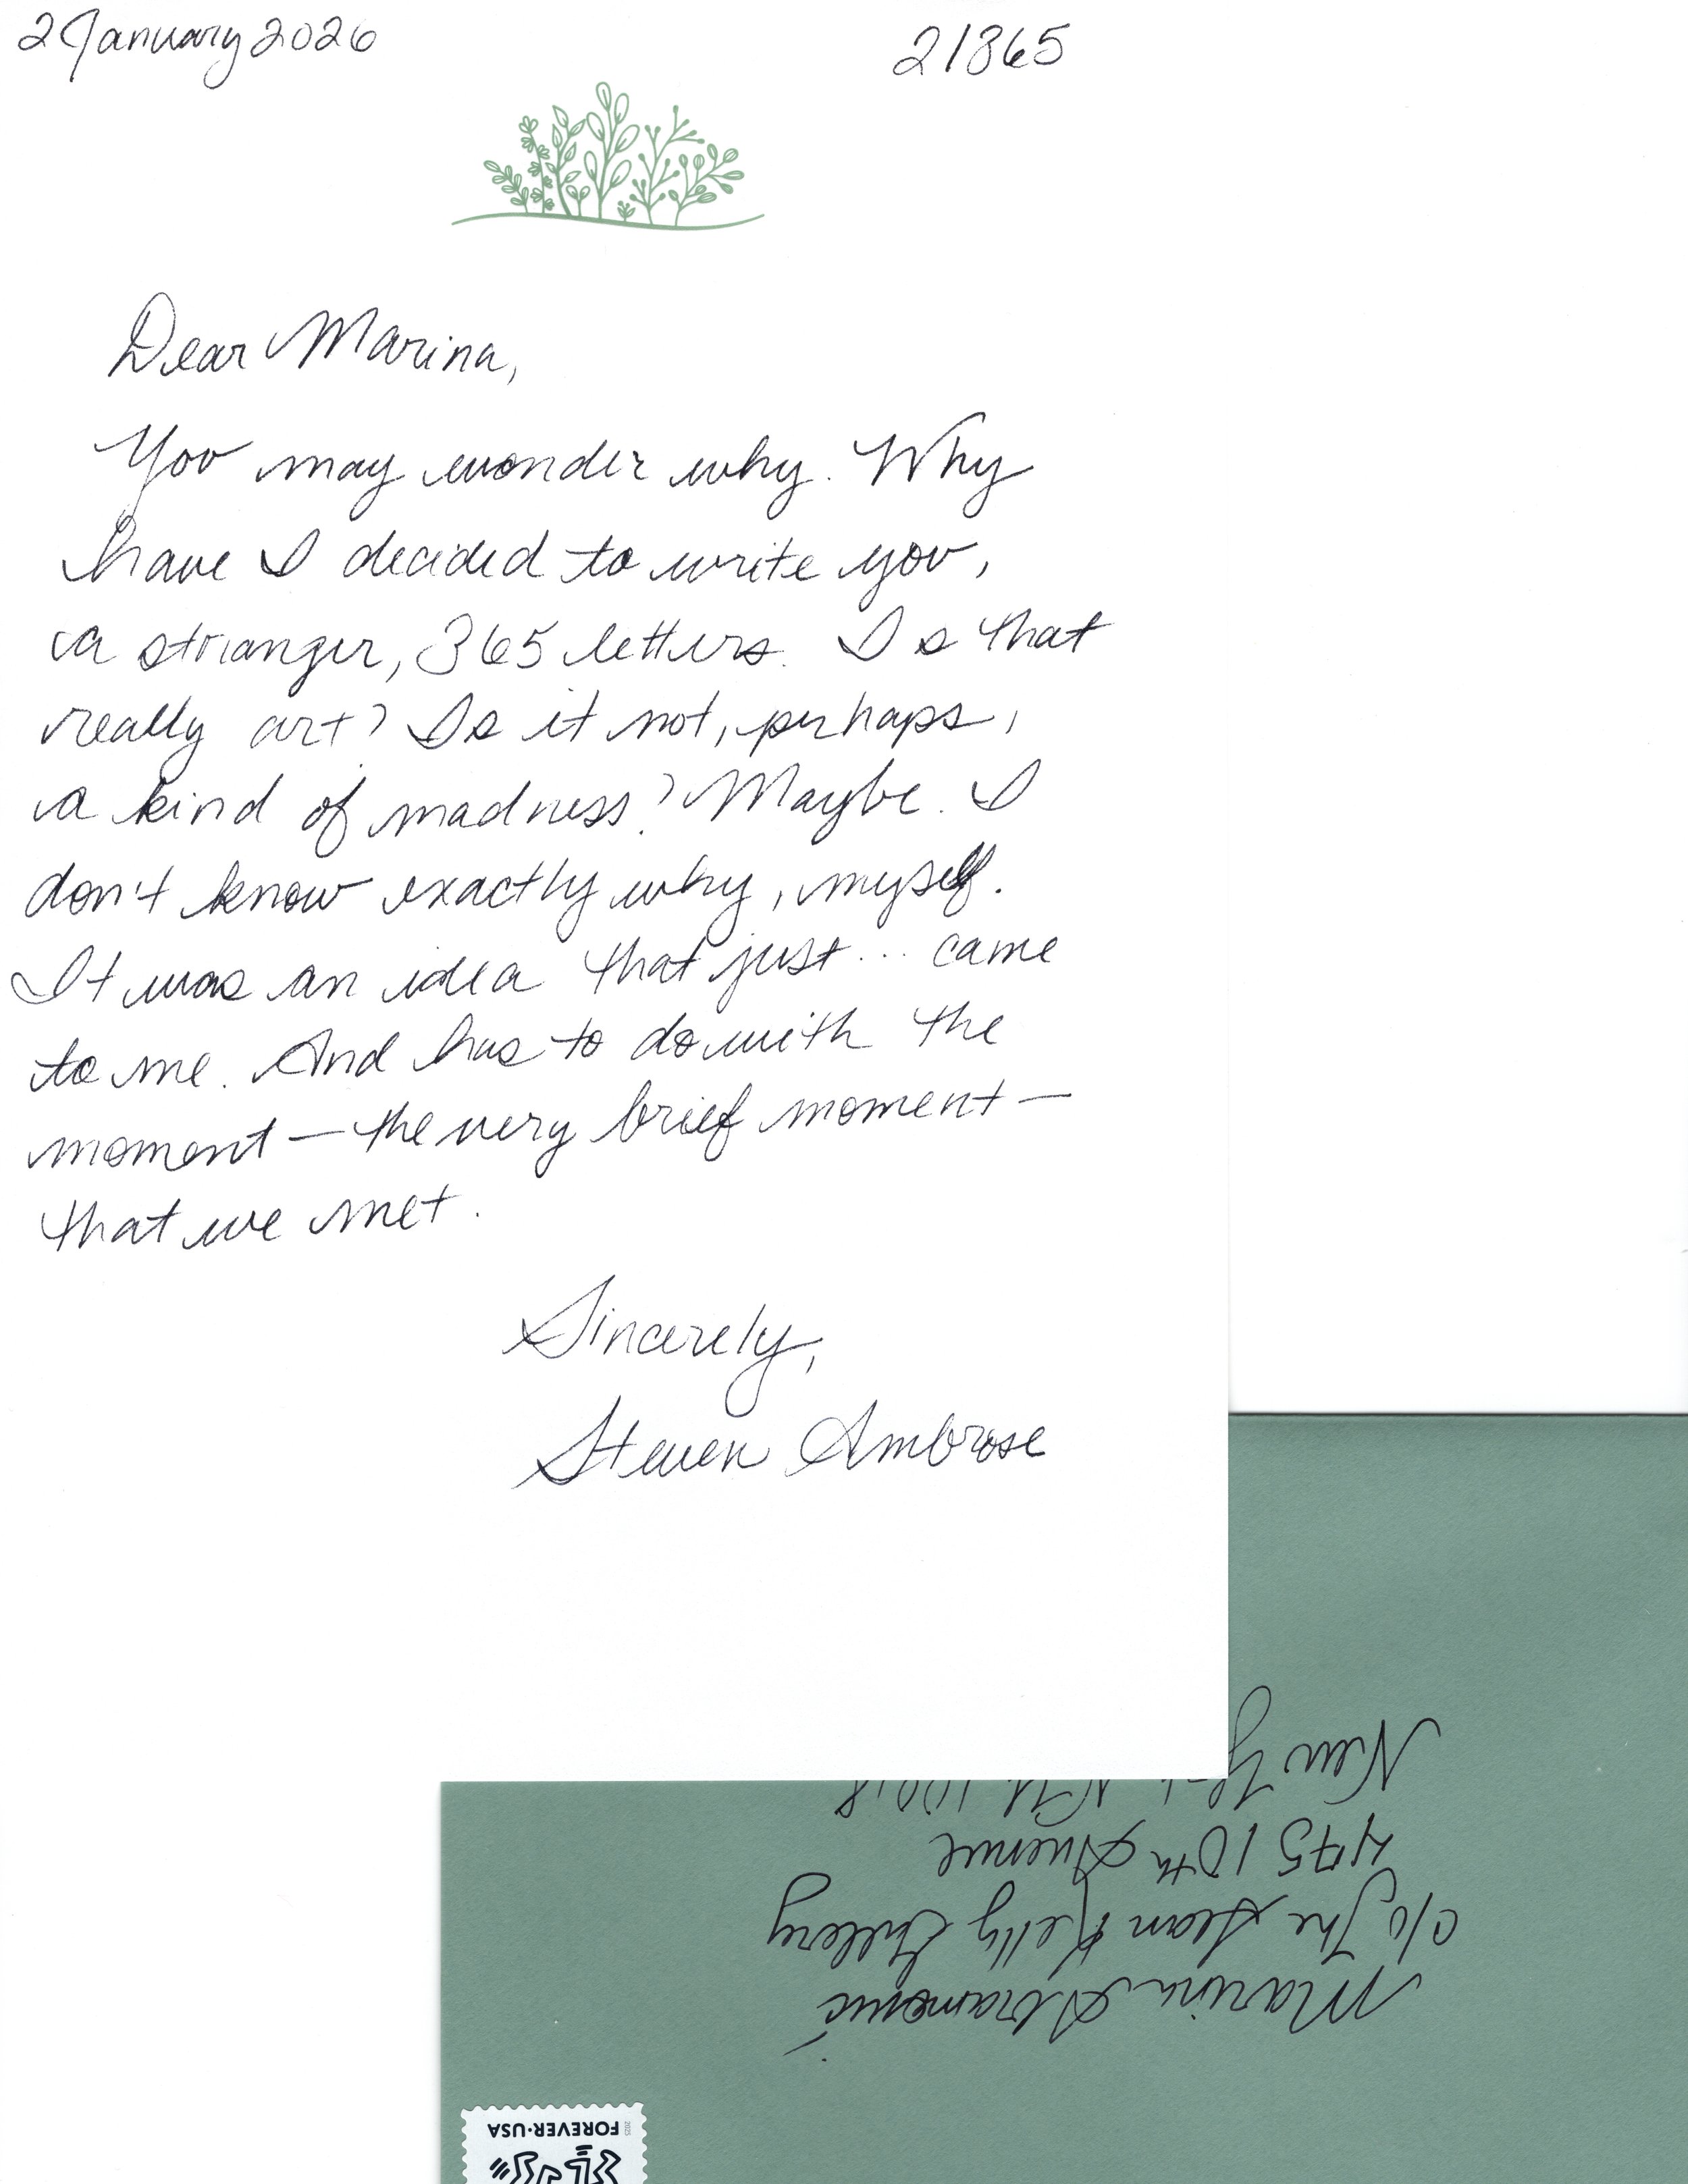 2 January 2026
2/365
Dear Marina,
You may wonder why. Why
have I decided to write you,
a stranger, 365 letters. Is that
really art? Is it not, perhaps,
a kind of madness? Maybe. I
don't know exactly why, myself.
It was an idea that just... came
to me. And has to do with the
moment — the very brief moment —
that we met.
Sincerely,
Steven Ambrose
Marina Abramović
c/o The Sean Kelly Gallery
475 10th Avenue
New York NY 10018
FOREVER·USA
2025